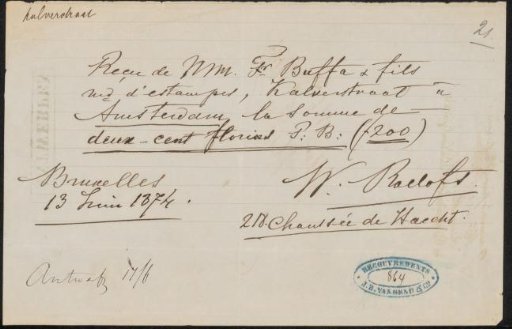 Kalverstraat
21
Reçu de MM. Fr Buffa & fils
md d'estampes, Kalverstraat à
Amsterdam, la Somme de
deux-cent florins P. B: (f 200)
Bruxelles
13 Juin 1874.
W. Roelofs.
218 Chaussée de Haecht.
Antwo 17/6
RECOUVREMENTS
864
& CO